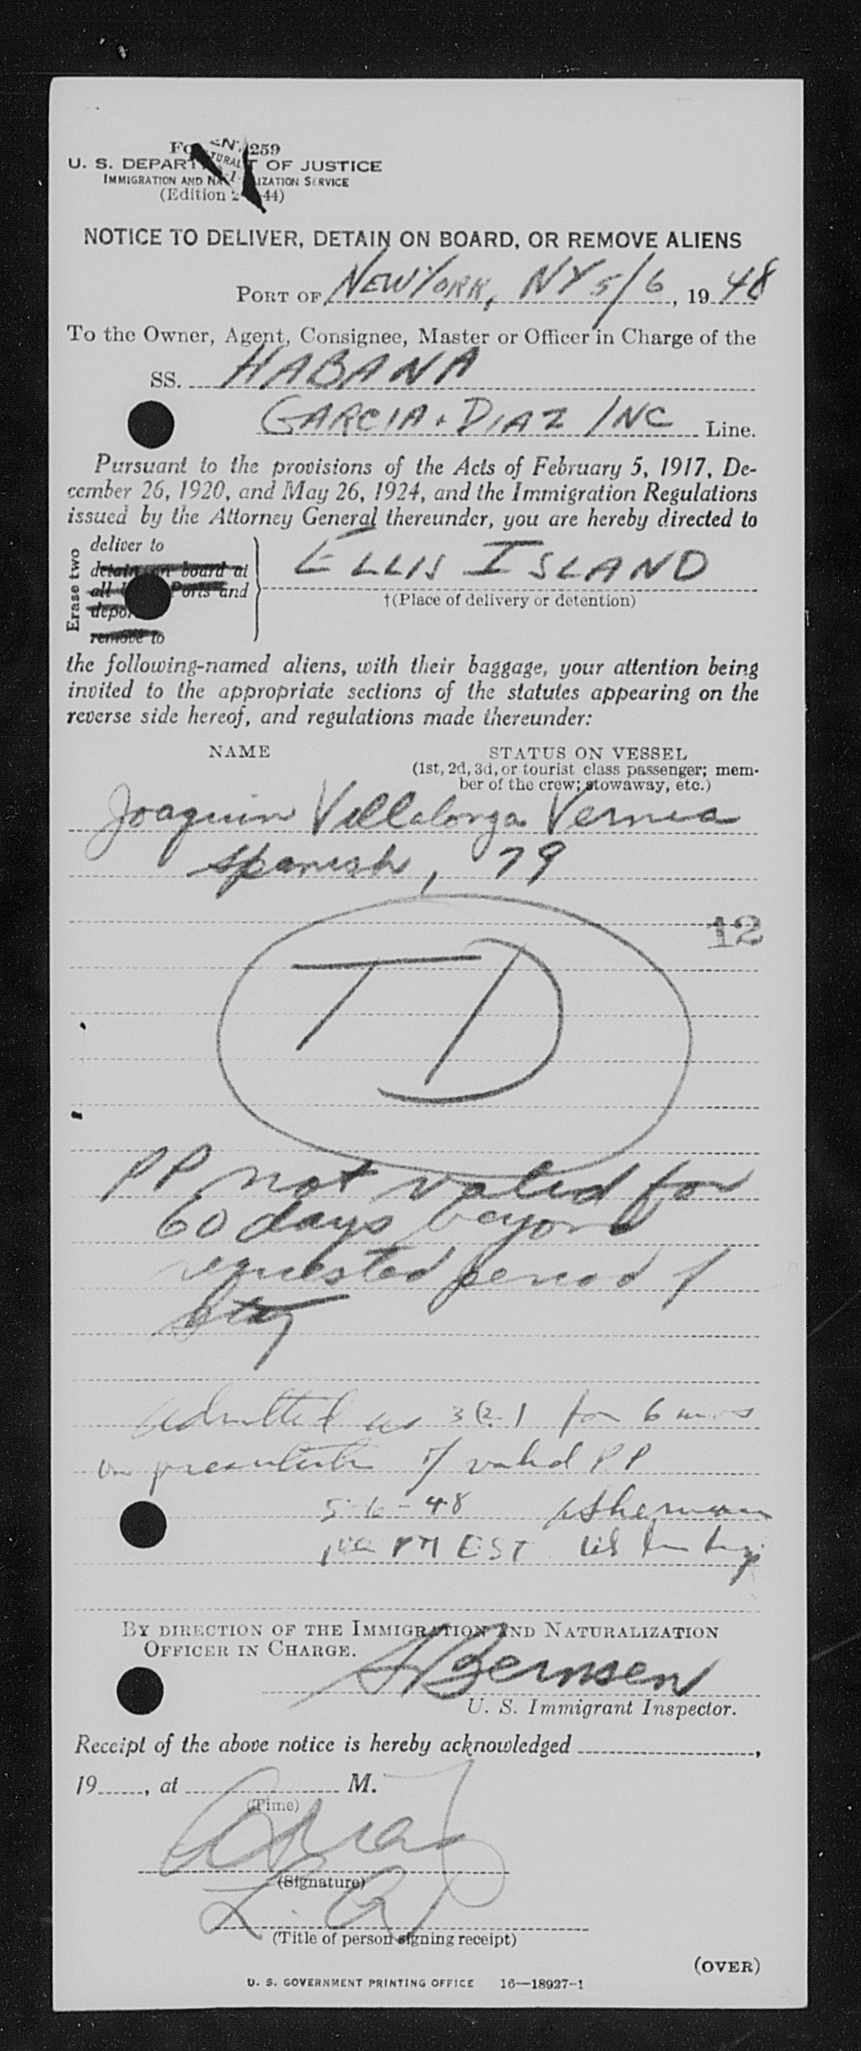 259
U. S. DEPART OF JUSTICE
IMMIGRATION AND NATURALIZATION SERVICE
(Edition 44)
NOTICE TO DELIVER, DETAIN ON BOARD, OR REMOVE ALIENS
PORT OF NEW YORK, NY 5/6, 1948
To the Owner, Agent, Consignee, Master or Officer in Charge of the
SS. HABANA
GARCIA + DIAZ INC Line.
Pursuant to the provisions of the Acts of February 5, 1917, De-
cember 26, 1920, and May 26, 1924, and the Immigration Regulations
issued by the Attorney General thereunder, you are hereby directed to
Erase two
deliver to
detain on board at
all Ports and
remove to
ELLIS ISLAND
†(Place of delivery or detention)
the following-named aliens, with their baggage, your attention being
invited to the appropriate sections of the statutes appearing on the
reverse side hereof, and regulations made thereunder:
NAME STATUS ON VESSEL
(1st, 2d, 3d, or tourist class passenger; mem-
ber of the crew; stowaway, etc.)
Joaquin Villalonga Vernia
Spanish, 79
12
TD
PP not valid for
60 days beyond
requested period of
stay
Admitted as 3(2) for 6 mos
on presentation of valid PP
5-6-48 Sherman
PM EST US Im Insp
BY DIRECTION OF THE IMMIGRATION AND NATURALIZATION
OFFICER IN CHARGE.
Bernsen
U. S. Immigrant Inspector.
Receipt of the above notice is hereby acknowledged ,
19 , at M.
(Time)
(Signature)
(Title of person signing receipt)
(OVER)
U. S. GOVERNMENT PRINTING OFFICE 16—18927-1